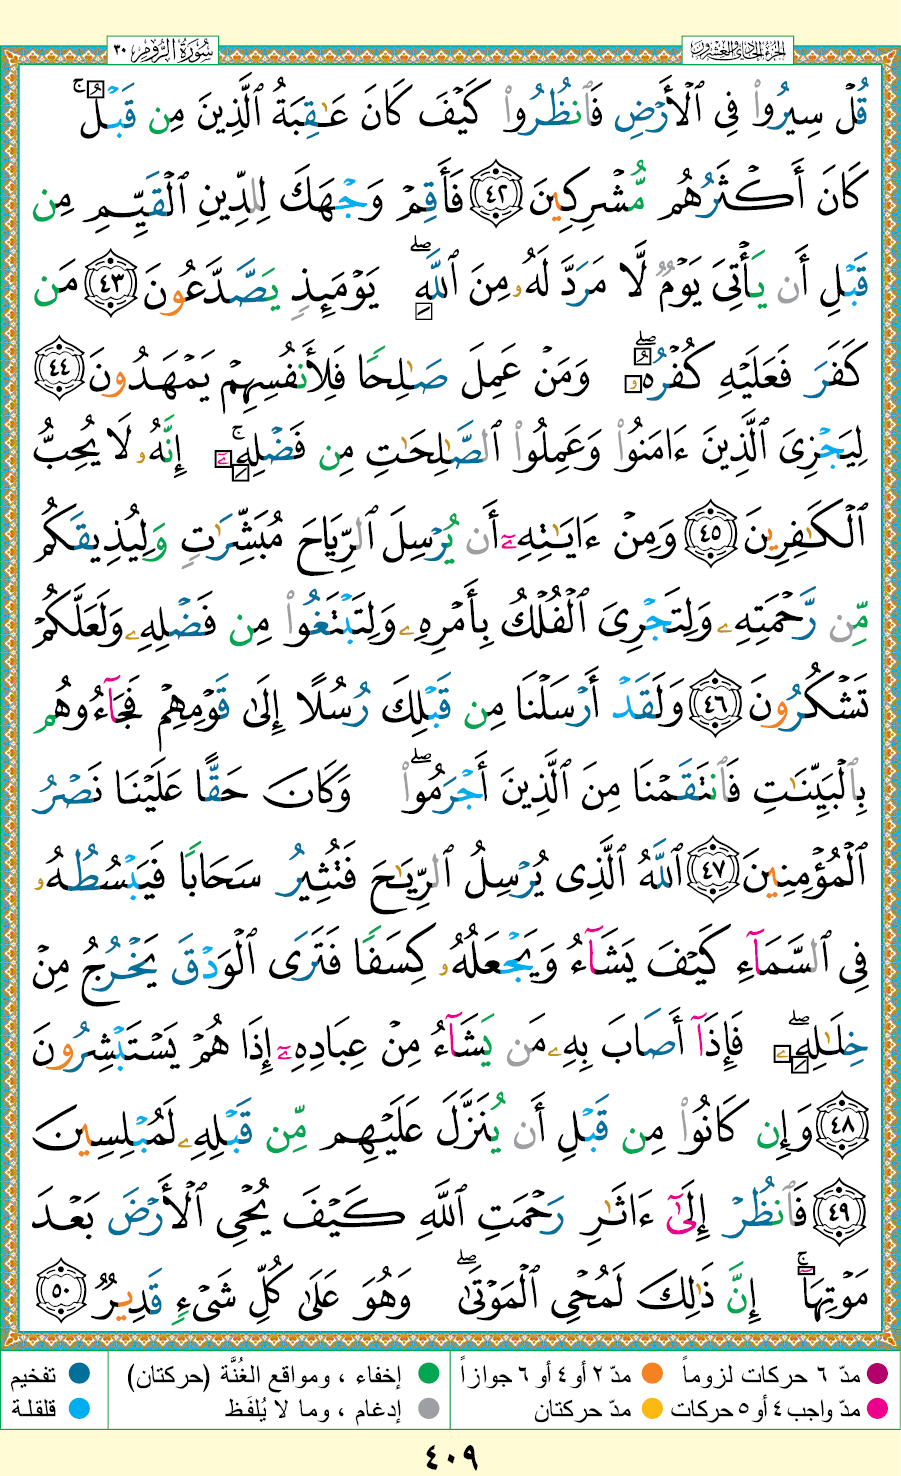 سُورَةُ الرُّومِ ٣٠
الجُزْءُ الحَادِي وَالعِشْرُونَ
قُلْ سِيرُوا۟ فِى ٱلْأَرْضِ فَٱنظُرُوا۟ كَيْفَ كَانَ عَـٰقِبَةُ ٱلَّذِينَ مِن قَبْلُ ۚ
كَانَ أَكْثَرُهُم مُّشْرِكِينَ ٤٢ فَأَقِمْ وَجْهَكَ لِلدِّينِ ٱلْقَيِّمِ مِن
قَبْلِ أَن يَأْتِىَ يَوْمٌ لَّا مَرَدَّ لَهُۥ مِنَ ٱللَّهِ ۖ يَوْمَئِذٍ يَصَّدَّعُونَ ٤٣ مَن
كَفَرَ فَعَلَيْهِ كُفْرُهُۥ ۖ وَمَنْ عَمِلَ صَـٰلِحًا فَلِأَنفُسِهِمْ يَمْهَدُونَ ٤٤
لِيَجْزِىَ ٱلَّذِينَ ءَامَنُوا۟ وَعَمِلُوا۟ ٱلصَّـٰلِحَـٰتِ مِن فَضْلِهِۦٓ ۚ إِنَّهُۥ لَا يُحِبُّ
ٱلْكَـٰفِرِينَ ٤٥ وَمِنْ ءَايَـٰتِهِۦٓ أَن يُرْسِلَ ٱلرِّيَاحَ مُبَشِّرَٰتٍ وَلِيُذِيقَكُم
مِّن رَّحْمَتِهِۦ وَلِتَجْرِىَ ٱلْفُلْكُ بِأَمْرِهِۦ وَلِتَبْتَغُوا۟ مِن فَضْلِهِۦ وَلَعَلَّكُمْ
تَشْكُرُونَ ٤٦ وَلَقَدْ أَرْسَلْنَا مِن قَبْلِكَ رُسُلًا إِلَىٰ قَوْمِهِمْ فَجَآءُوهُم
بِٱلْبَيِّنَـٰتِ فَٱنتَقَمْنَا مِنَ ٱلَّذِينَ أَجْرَمُوا۟ ۖ وَكَانَ حَقًّا عَلَيْنَا نَصْرُ
ٱلْمُؤْمِنِينَ ٤٧ ٱللَّهُ ٱلَّذِى يُرْسِلُ ٱلرِّيَـٰحَ فَتُثِيرُ سَحَابًا فَيَبْسُطُهُۥ
فِى ٱلسَّمَآءِ كَيْفَ يَشَآءُ وَيَجْعَلُهُۥ كِسَفًا فَتَرَى ٱلْوَدْقَ يَخْرُجُ مِنْ
خِلَـٰلِهِۦ ۖ فَإِذَآ أَصَابَ بِهِۦ مَن يَشَآءُ مِنْ عِبَادِهِۦٓ إِذَا هُمْ يَسْتَبْشِرُونَ
٤٨ وَإِن كَانُوا۟ مِن قَبْلِ أَن يُنَزَّلَ عَلَيْهِم مِّن قَبْلِهِۦ لَمُبْلِسِينَ
٤٩ فَٱنظُرْ إِلَىٰٓ ءَاثَـٰرِ رَحْمَتِ ٱللَّهِ كَيْفَ يُحْىِ ٱلْأَرْضَ بَعْدَ
مَوْتِهَآ ۚ إِنَّ ذَٰلِكَ لَمُحْىِ ٱلْمَوْتَىٰ ۖ وَهُوَ عَلَىٰ كُلِّ شَىْءٍ قَدِيرٌ ٥٠
مدّ ٦ حركات لزوماً مدّ ٢ أو ٤ أو ٦ جوازاً إخفاء ، ومواقع الغُنَّة (حركتان) تفخيم
مدّ واجب ٤ أو ٥ حركات مدّ حركتان إدغام ، وما لا يُلفَظ قلقلة
٤٠٩